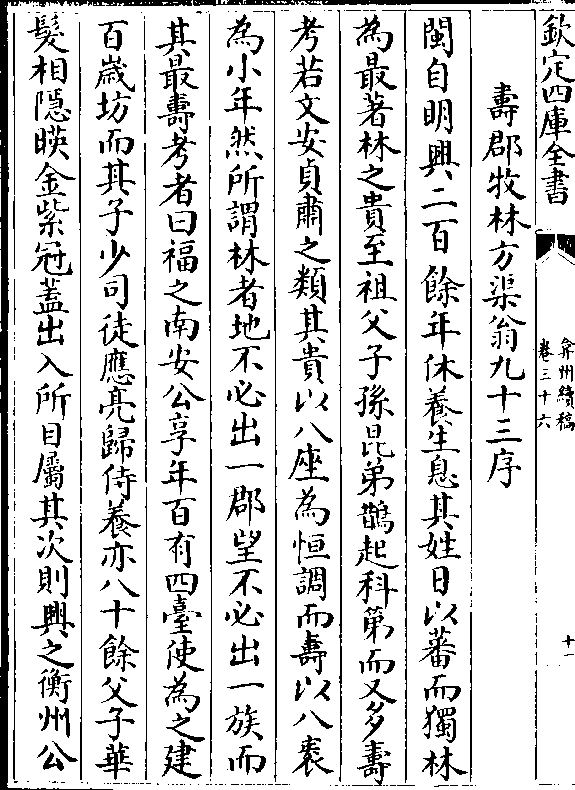 欽定四庫全書
弇州續稿
卷三十六
十一
壽郡牧林方渠翁九十三序
閩自明興二百餘年休養生息其姓日以蕃而獨林
為最著林之貴至祖父子孫昆弟鵲起科第而又多壽
考若文安貞肅之類其貴以八座為恒調而壽以八袠
為小年然所謂林者地不必出一郡望不必出一族而
其最壽考者曰福之南安公享年百有四臺使為之建
百歲坊而其子少司徒應亮歸侍養亦八十餘父子華
髮相隱暎金紫冠蓋出入所目屬其次則興之衡州公